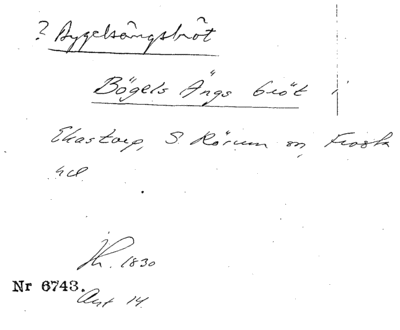 ? Bygelsängsbröt
Bögels Ängs bröt
Ekastorp, S. Rörum sn, Frosta
hd
Jh. 1830
Nr 6743.
Akt 14.